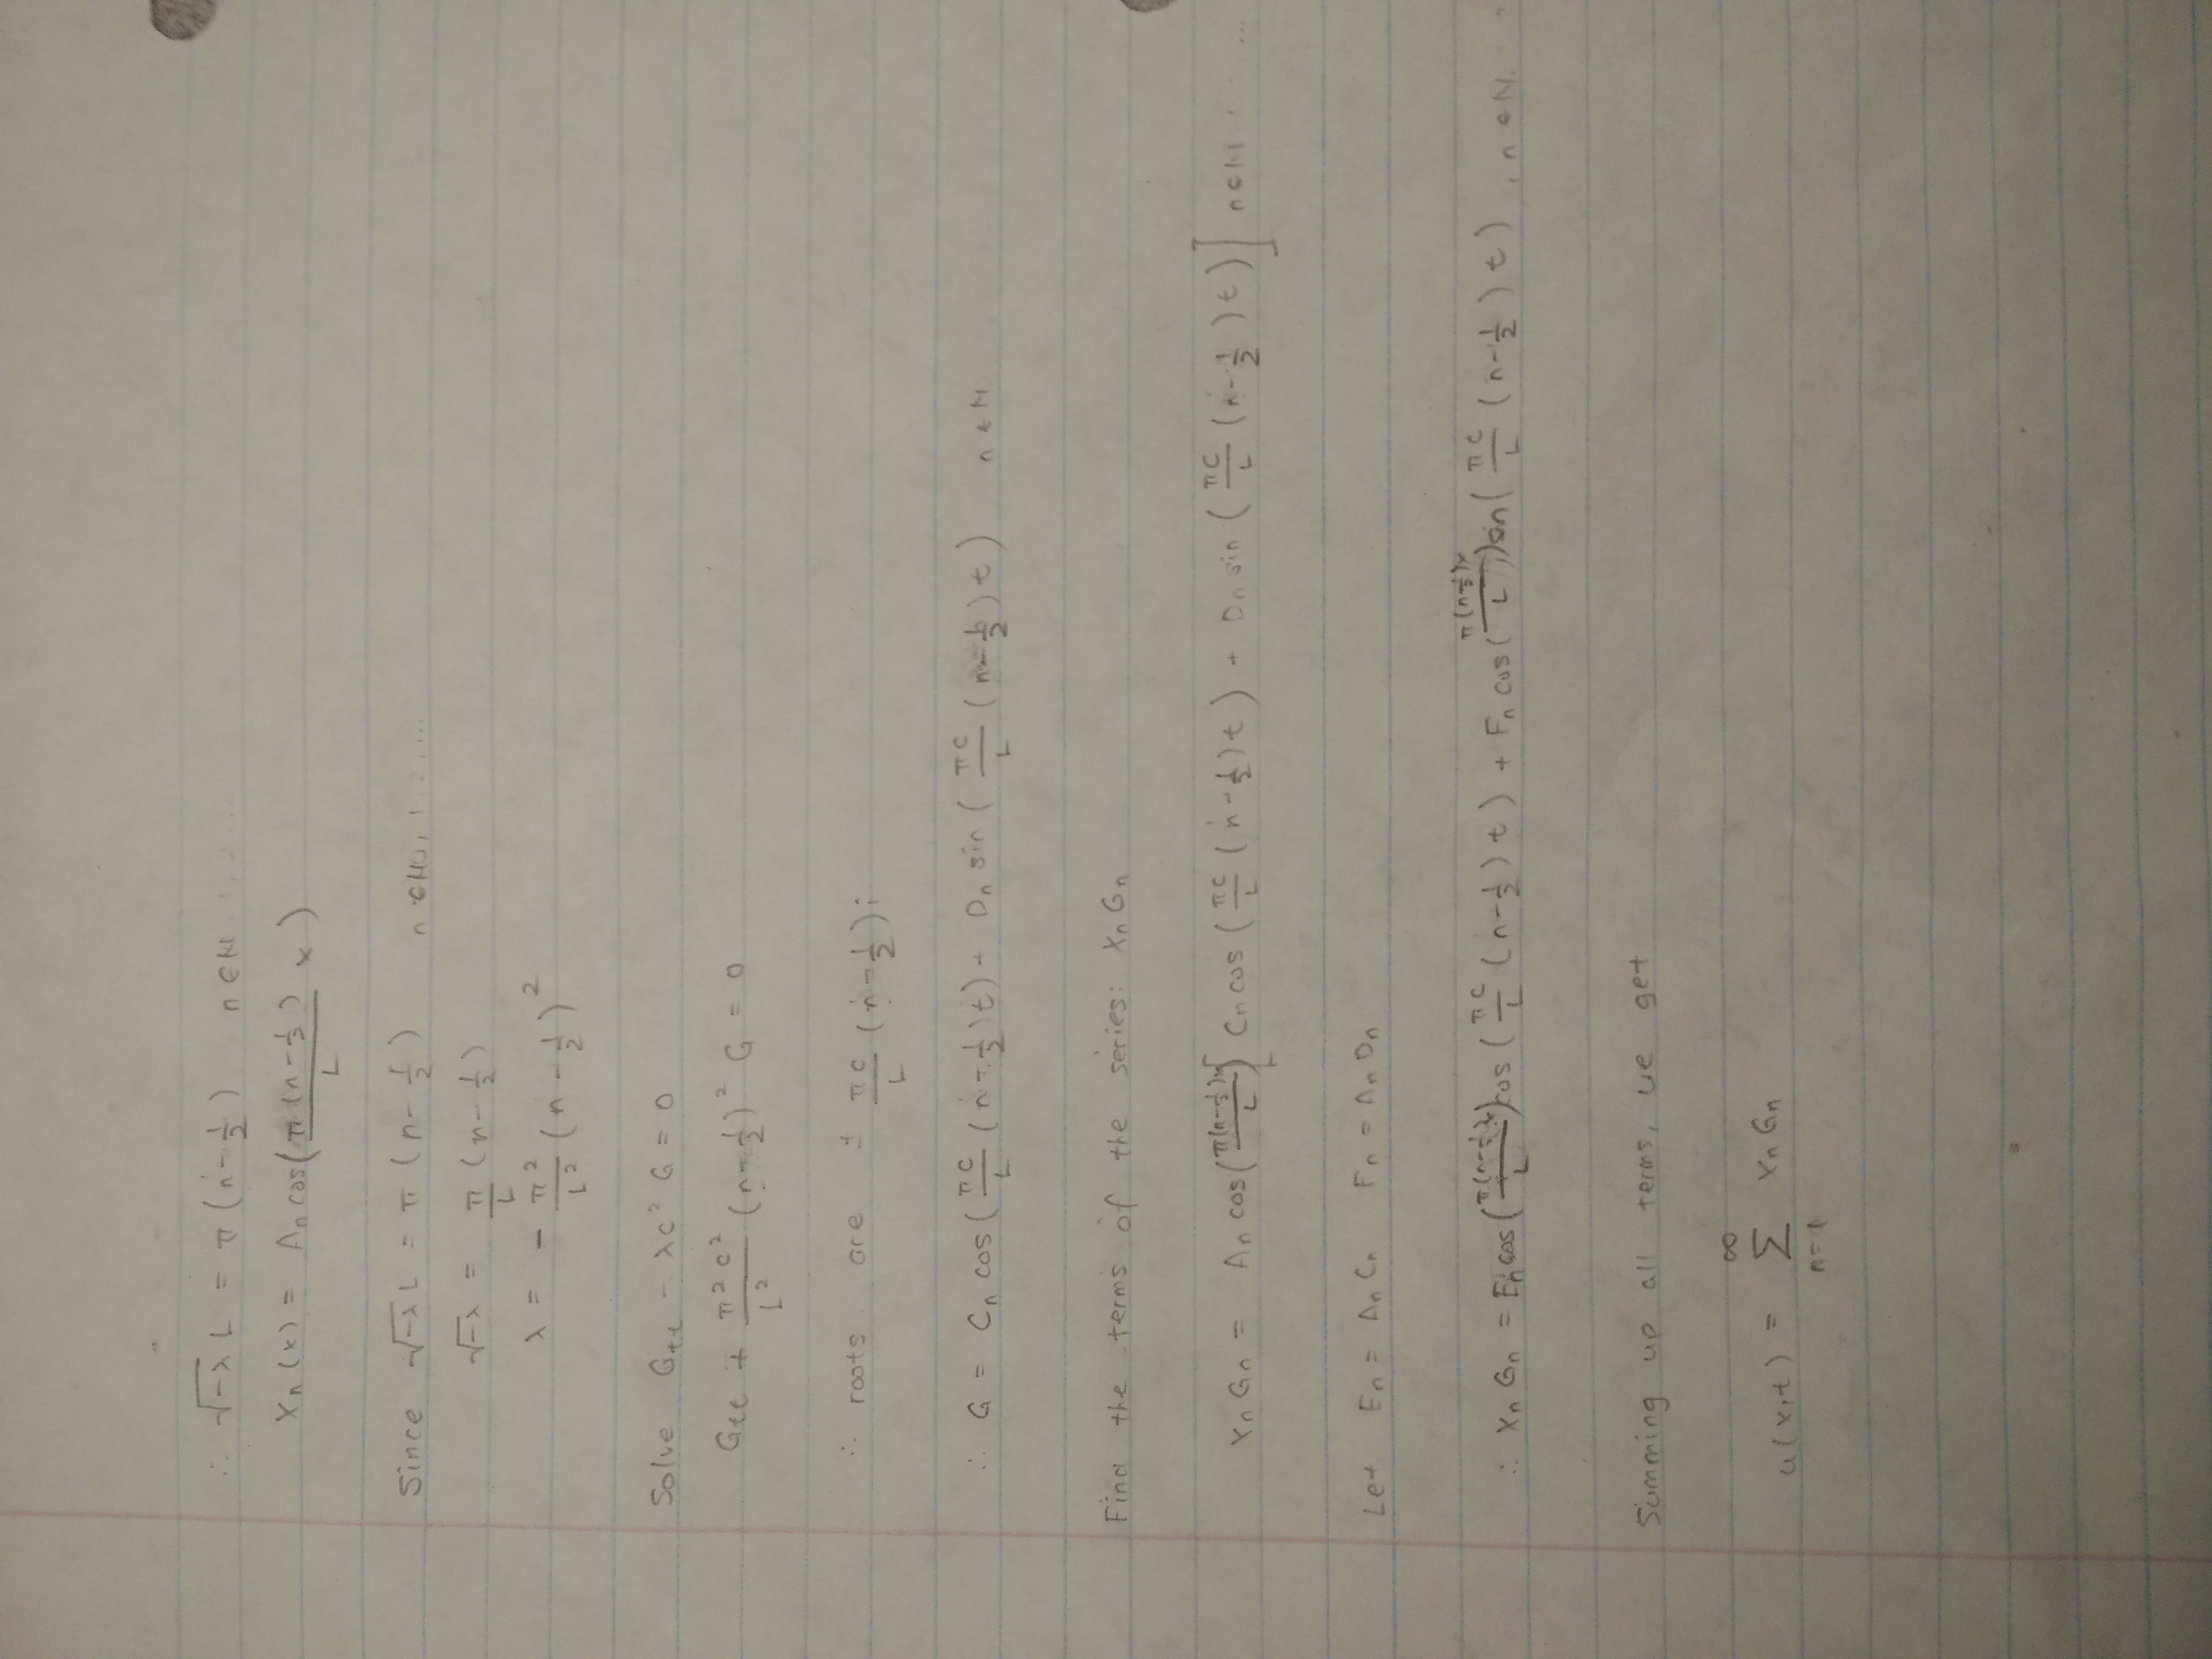 ∴ √-λ L = π (n - 1/2) n ∈ N
Xn(x) = An cos(π(n - 1/2)/L x)
Since √-λ L = π (n - 1/2) n ∈ N
√-λ = π/L (n - 1/2)
λ = - π²/L² (n - 1/2)²
Solve Gtt - λc² G = 0
Gtt + π²c²/L² (n - 1/2)² G = 0
∴ roots are ± πc/L (n - 1/2)i
∴ G = Cn cos(πc/L (n - 1/2)t) + Dn sin(πc/L (n - 1/2)t) n ∈ N
Find the terms of the series: XnGn
XnGn = An cos(π(n - 1/2)x/L)[Cn cos(πc/L (n - 1/2)t) + Dn sin(πc/L (n - 1/2)t)] n ∈ N
Let En = AnCn Fn = AnDn
∴ XnGn = En cos(π(n - 1/2)x/L)cos(πc/L (n - 1/2)t) + Fn cos(π(n - 1/2)x/L)sin(πc/L (n - 1/2)t), n ∈ N.
Summing up all terms, we get
u(x,t) = ∞ Σ n=1 XnGn